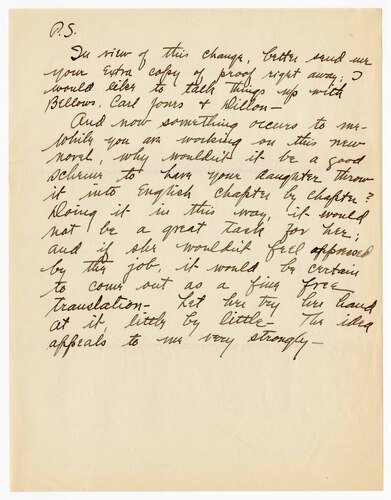 P.S.
In view of this change, better send me
your extra copy of proof right away; I
would like to talk things up with
Bellows, Carl Jones & Dillon—
And now something occurs to me—
While you are working on this new
novel, why wouldn't it be a good
scheme to have your daughter throw
it into English chapter by chapter?
Doing it in this way, it would
not be a great task for her;
and if she wouldn't feel oppressed
by the job, it would be certain
to come out as a fine free
translation— Let her try her hand
at it, little by little— The idea
appeals to me very strongly—